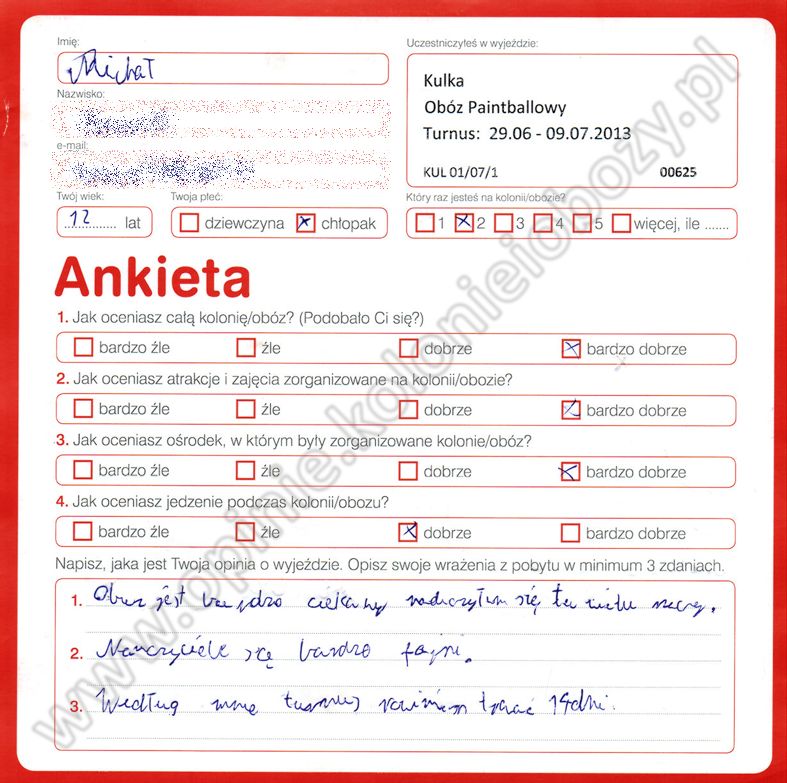 Imię:
Michał
Uczestniczyłeś w wyjeździe:
Kulka
Obóz Paintballowy
Turnus: 29.06 - 09.07.2013
KUL 01/07/1 00625
Nazwisko:
e-mail:
Twój wiek:
12 lat
Twoja płeć:
dziewczyna chłopak
Który raz jesteś na kolonii/obozie?
1 2 3 4 5 więcej, ile .......
Ankieta
1. Jak oceniasz całą kolonię/obóz? (Podobało Ci się?)
bardzo źle źle dobrze bardzo dobrze
2. Jak oceniasz atrakcje i zajęcia zorganizowane na kolonii/obozie?
bardzo źle źle dobrze bardzo dobrze
3. Jak oceniasz ośrodek, w którym były zorganizowane kolonie/obóz?
bardzo źle źle dobrze bardzo dobrze
4. Jak oceniasz jedzenie podczas kolonii/obozu?
bardzo źle źle dobrze bardzo dobrze
Napisz, jaka jest Twoja opinia o wyjeździe. Opisz swoje wrażenia z pobytu w minimum 3 zdaniach.
1. Obuz jest bardzo ciekawy nauczyłem się tu wielu rzeczy.
2. Nauczyciele są bardzo fajni.
3. Według mnie turnus powinien trwać 14dni.
www.opinie.kolonieiobozy.pl